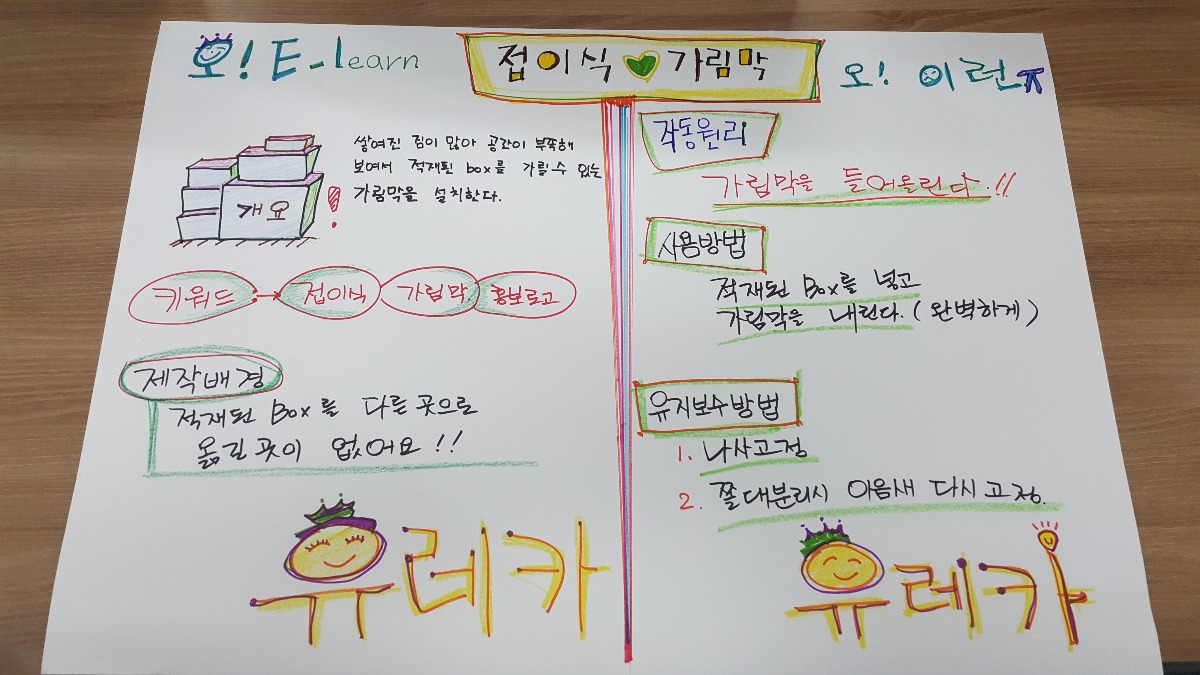 오! E-learn
접이식 가림막
오! 이런ㅠ
개요
쌓여진 짐이 많아 공간이 부족해
보여서 적재된 box를 가릴수 있는
가림막을 설치한다.
키워드 → 접이식 가림막 홍보로고
제작배경
적재된 Box를 다른 곳으로
옮길 곳이 없어요!!
유레카
작동원리
가림막을 들어올린다.!!
사용방법
적재된 Box를 넣고
가림막을 내린다. (완벽하게)
유지보수방법
1. 나사고정
2. 쫄대분리시 이음새 다시 고정.
유레카